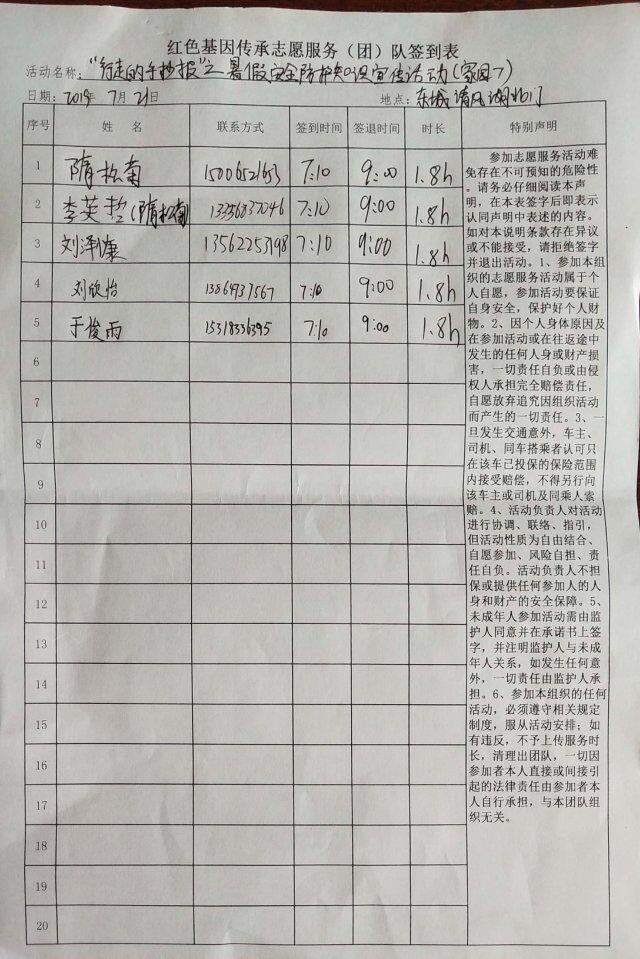 红色基因传承志愿服务（团）队签到表
活动名称："行走的手抄报"之暑假安全防护知识宣传活动(家园7)
日期：2019年 7月21日 地点：东城清风湖北门
序号 姓 名 联系方式 签到时间 签退时间 时长 特别声明
1 隋松南 15006521653 7:10 9:00 1.8h
2 李英哲(隋松南) 13356837046 7:10 9:00 1.8h
3 刘泽康 13562253198 7:10 9:00 1.8h
4 刘欣怡 13864937567 7:10 9:00 1.8h
5 于俊雨 15318336395 7:10 9:00 1.8h
6
7
8
9
10
11
12
13
14
15
16
17
18
19
20
参加志愿服务活动难
免存在不可预知的危险性
。请务必仔细阅读本声
明，在本表签字后即表示
认同声明中表述的内容。
如对本说明条款存在异议
或不能接受，请拒绝签字
并退出活动。1、参加本组
织的志愿服务活动属于个
人自愿，参加活动要保证
自身安全，保护好个人财
物。2、因个人身体原因及
在参加活动或在往返途中
发生的任何人身或财产损
害，一切责任自负或由侵
权人承担完全赔偿责任，
自愿放弃追究因组织活动
而产生的一切责任。3、一
旦发生交通意外，车主、
司机、同车搭乘者认可只
在该车已投保的保险范围
内接受赔偿，不得另行向
该车主或司机及同乘人索
赔。4、活动负责人对活动
进行协调、联络、指引，
但活动性质为自由结合、
自愿参加、风险自担、责
任自负。活动负责人不担
保或提供任何参加人的人
身和财产的安全保障。5、
未成年人参加活动需由监
护人同意并在承诺书上签
字，并注明监护人与未成
年人关系，如发生任何意
外，一切责任由监护人承
担。6、参加本组织的任何
活动，必须遵守相关规定
制度，服从活动安排；如
有违反，不予上传服务时
长，清理出团队，一切因
参加者本人直接或间接引
起的法律责任由参加者本
人自行承担，与本团队组
织无关。